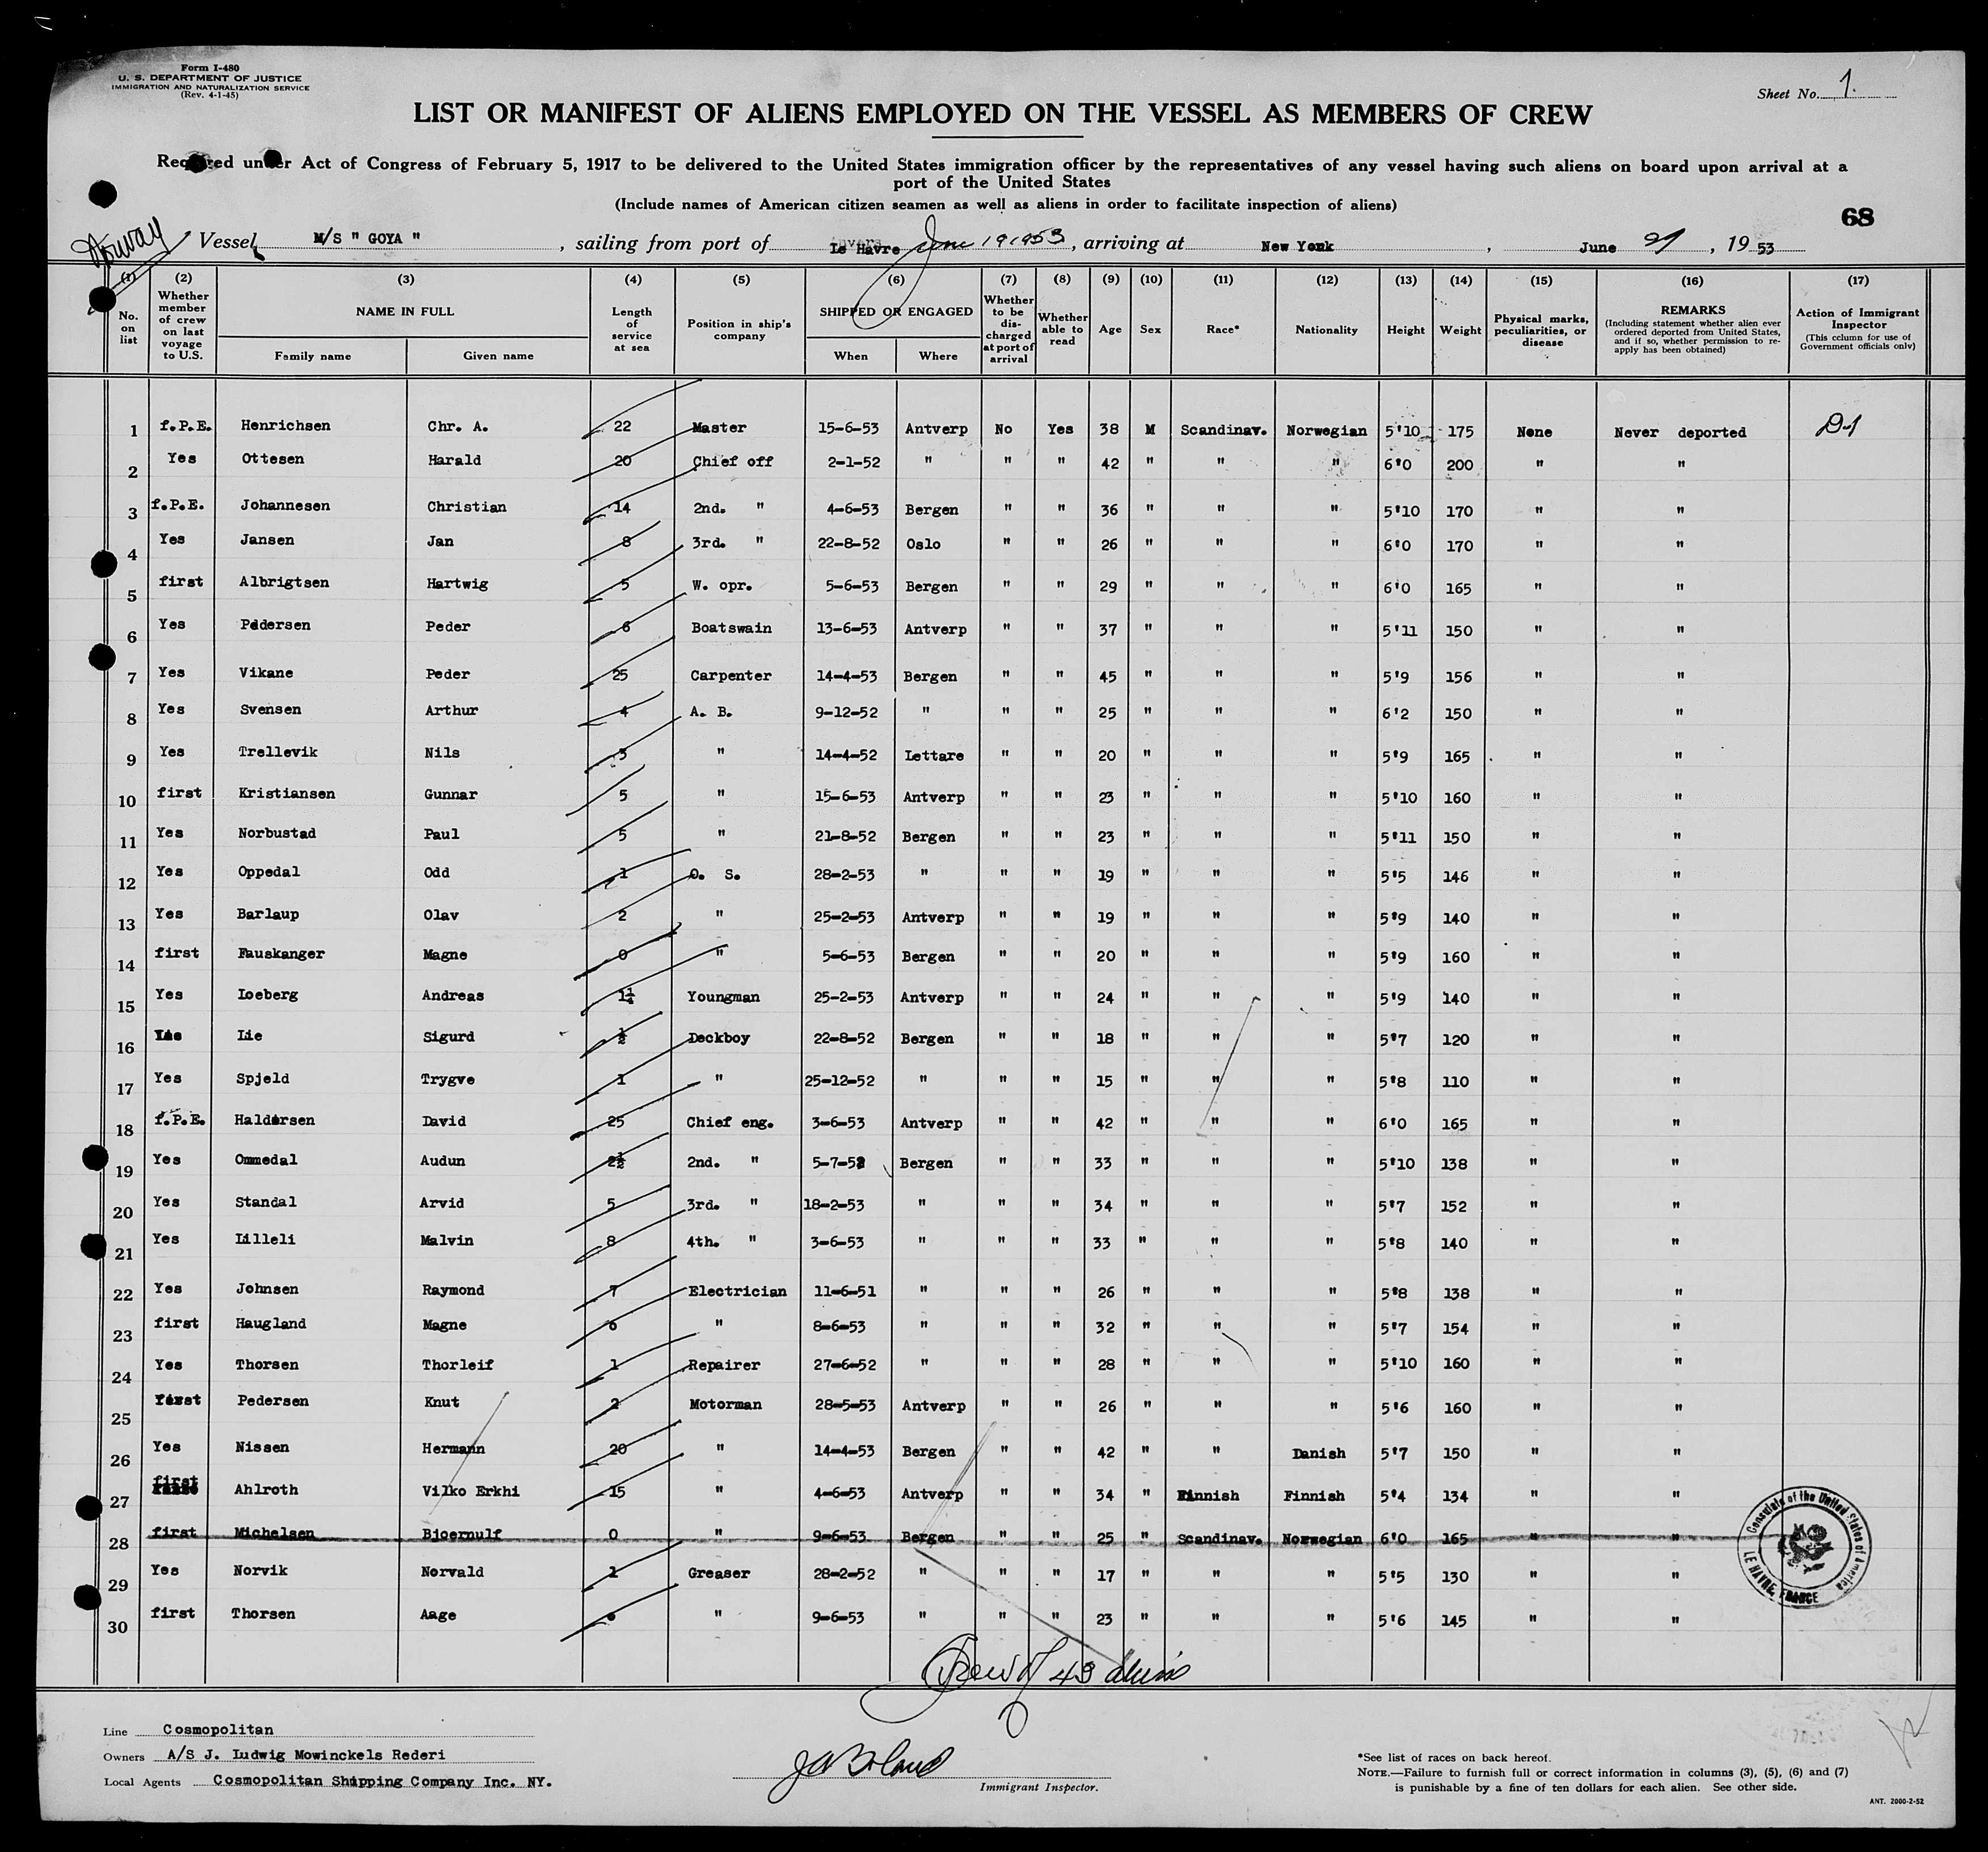 Form I-480
U. S. DEPARTMENT OF JUSTICE
IMMIGRATION AND NATURALIZATION SERVICE
(Rev. 4-1-45)
Sheet No. 1.
LIST OR MANIFEST OF ALIENS EMPLOYED ON THE VESSEL AS MEMBERS OF CREW
Required under Act of Congress of February 5, 1917 to be delivered to the United States immigration officer by the representatives of any vessel having such aliens on board upon arrival at a
port of the United States
(Include names of American citizen seamen as well as aliens in order to facilitate inspection of aliens)
68
Norway
Vessel M/S " GOYA " , sailing from port of Le Havre June 19 1953, arriving at New York , June 29, 19 53
(1) (2) (3) (4) (5) (6) (7) (8) (9) (10) (11) (12) (13) (14) (15) (16) (17)
No. on list Whether member of crew on last voyage to U.S. NAME IN FULL Family name Given name Length of service at sea Position in ship's company SHIPPED OR ENGAGED When Where Whether to be discharged at port of arrival Whether able to read Age Sex Race* Nationality Height Weight Physical marks, peculiarities, or disease REMARKS (Including statement whether alien ever ordered deported from United States, and if so, whether permission to reapply has been obtained) Action of Immigrant Inspector (This column for use of Government officials only)
1 f.P.E. Henrichsen Chr. A. 22 Master 15-6-53 Antverp No Yes 38 M Scandinav. Norwegian 5'10 175 None Never deported D-1
2 Yes Ottesen Harald 20 Chief off 2-1-52 " " " 42 " " " 6'0 200 " "
3 f.P.E. Johannesen Christian 14 2nd. " 4-6-53 Bergen " " 36 " " " 5'10 170 " "
4 Yes Jansen Jan 8 3rd. " 22-8-52 Oslo " " 26 " " " 6'0 170 " "
5 first Albrigtsen Hartwig 5 W. opr. 5-6-53 Bergen " " 29 " " " 6'0 165 " "
6 Yes Pedersen Peder 6 Boatswain 13-6-53 Antverp " " 37 " " " 5'11 150 " "
7 Yes Vikane Peder 25 Carpenter 14-4-53 Bergen " " 45 " " " 5'9 156 " "
8 Yes Svensen Arthur 4 A. B. 9-12-52 " " " 25 " " " 6'2 150 " "
9 Yes Trellevik Nils 3 " 14-4-52 Lettare " " 20 " " " 5'9 165 " "
10 first Kristiansen Gunnar 5 " 15-6-53 Antverp " " 23 " " " 5'10 160 " "
11 Yes Norbustad Paul 5 " 21-8-52 Bergen " " 23 " " " 5'11 150 " "
12 Yes Oppedal Odd 1 O. S. 28-2-53 " " " 19 " " " 5'5 146 " "
13 Yes Barlaup Olav 2 " 25-2-53 Antverp " " 19 " " " 5'9 140 " "
14 first Fauskanger Magne 0 " 5-6-53 Bergen " " 20 " " " 5'9 160 " "
15 Yes Loeberg Andreas 1¼ Youngman 25-2-53 Antverp " " 24 " " " 5'9 140 " "
16 Lie Sigurd ½ Deckboy 22-8-52 Bergen " " 18 " " " 5'7 120 " "
17 Yes Spjeld Trygve 1 " 25-12-52 " " " 15 " " " 5'8 110 " "
18 f.P.E. Haldorsen David 25 Chief eng. 3-6-53 Antverp " " 42 " " " 6'0 165 " "
19 Yes Ommedal Audun 2½ 2nd. " 5-7-52 Bergen " " 33 " " " 5'10 138 " "
20 Yes Standal Arvid 5 3rd. " 18-2-53 " " " 34 " " " 5'7 152 " "
21 Yes Lilleli Malvin 8 4th. " 3-6-53 " " " 33 " " " 5'8 140 " "
22 Yes Johnsen Raymond 7 Electrician 11-6-51 " " " 26 " " " 5'8 138 " "
23 first Haugland Magne 6 " 8-6-53 " " " 32 " " " 5'7 154 " "
24 Yes Thorsen Thorleif 1 Repairer 27-6-52 " " " 28 " " " 5'10 160 " "
25 first Pedersen Knut 2 Motorman 28-5-53 Antverp " " 26 " " " 5'6 160 " "
26 Yes Nissen Hermann 20 " 14-4-53 Bergen " " 42 " " Danish 5'7 150 " "
27 first Ahlroth Vilko Erkhi 15 " 4-6-53 Antverp " " 34 " Finnish Finnish 5'4 134 " "
28 first Michelsen Bjoernulf 0 " 9-6-53 Bergen " " 25 " Scandinav. Norwegian 6'0 165 " "
29 Yes Norvik Norvald 1 Greaser 28-2-52 " " " 17 " " " 5'5 130 " "
30 first Thorsen Aage 0 " 9-6-53 " " " 23 " " " 5'6 145 " "
Consulate of the United States of America
LE HAVRE, FRANCE
Crew of 43 aliens
Line Cosmopolitan
Owners A/S J. Ludwig Mowinckels Rederi
Local Agents Cosmopolitan Shipping Company Inc. NY.
Immigrant Inspector.
*See list of races on back hereof.
NOTE.—Failure to furnish full or correct information in columns (3), (5), (6) and (7)
is punishable by a fine of ten dollars for each alien. See other side.
ANT. 2000-2-52